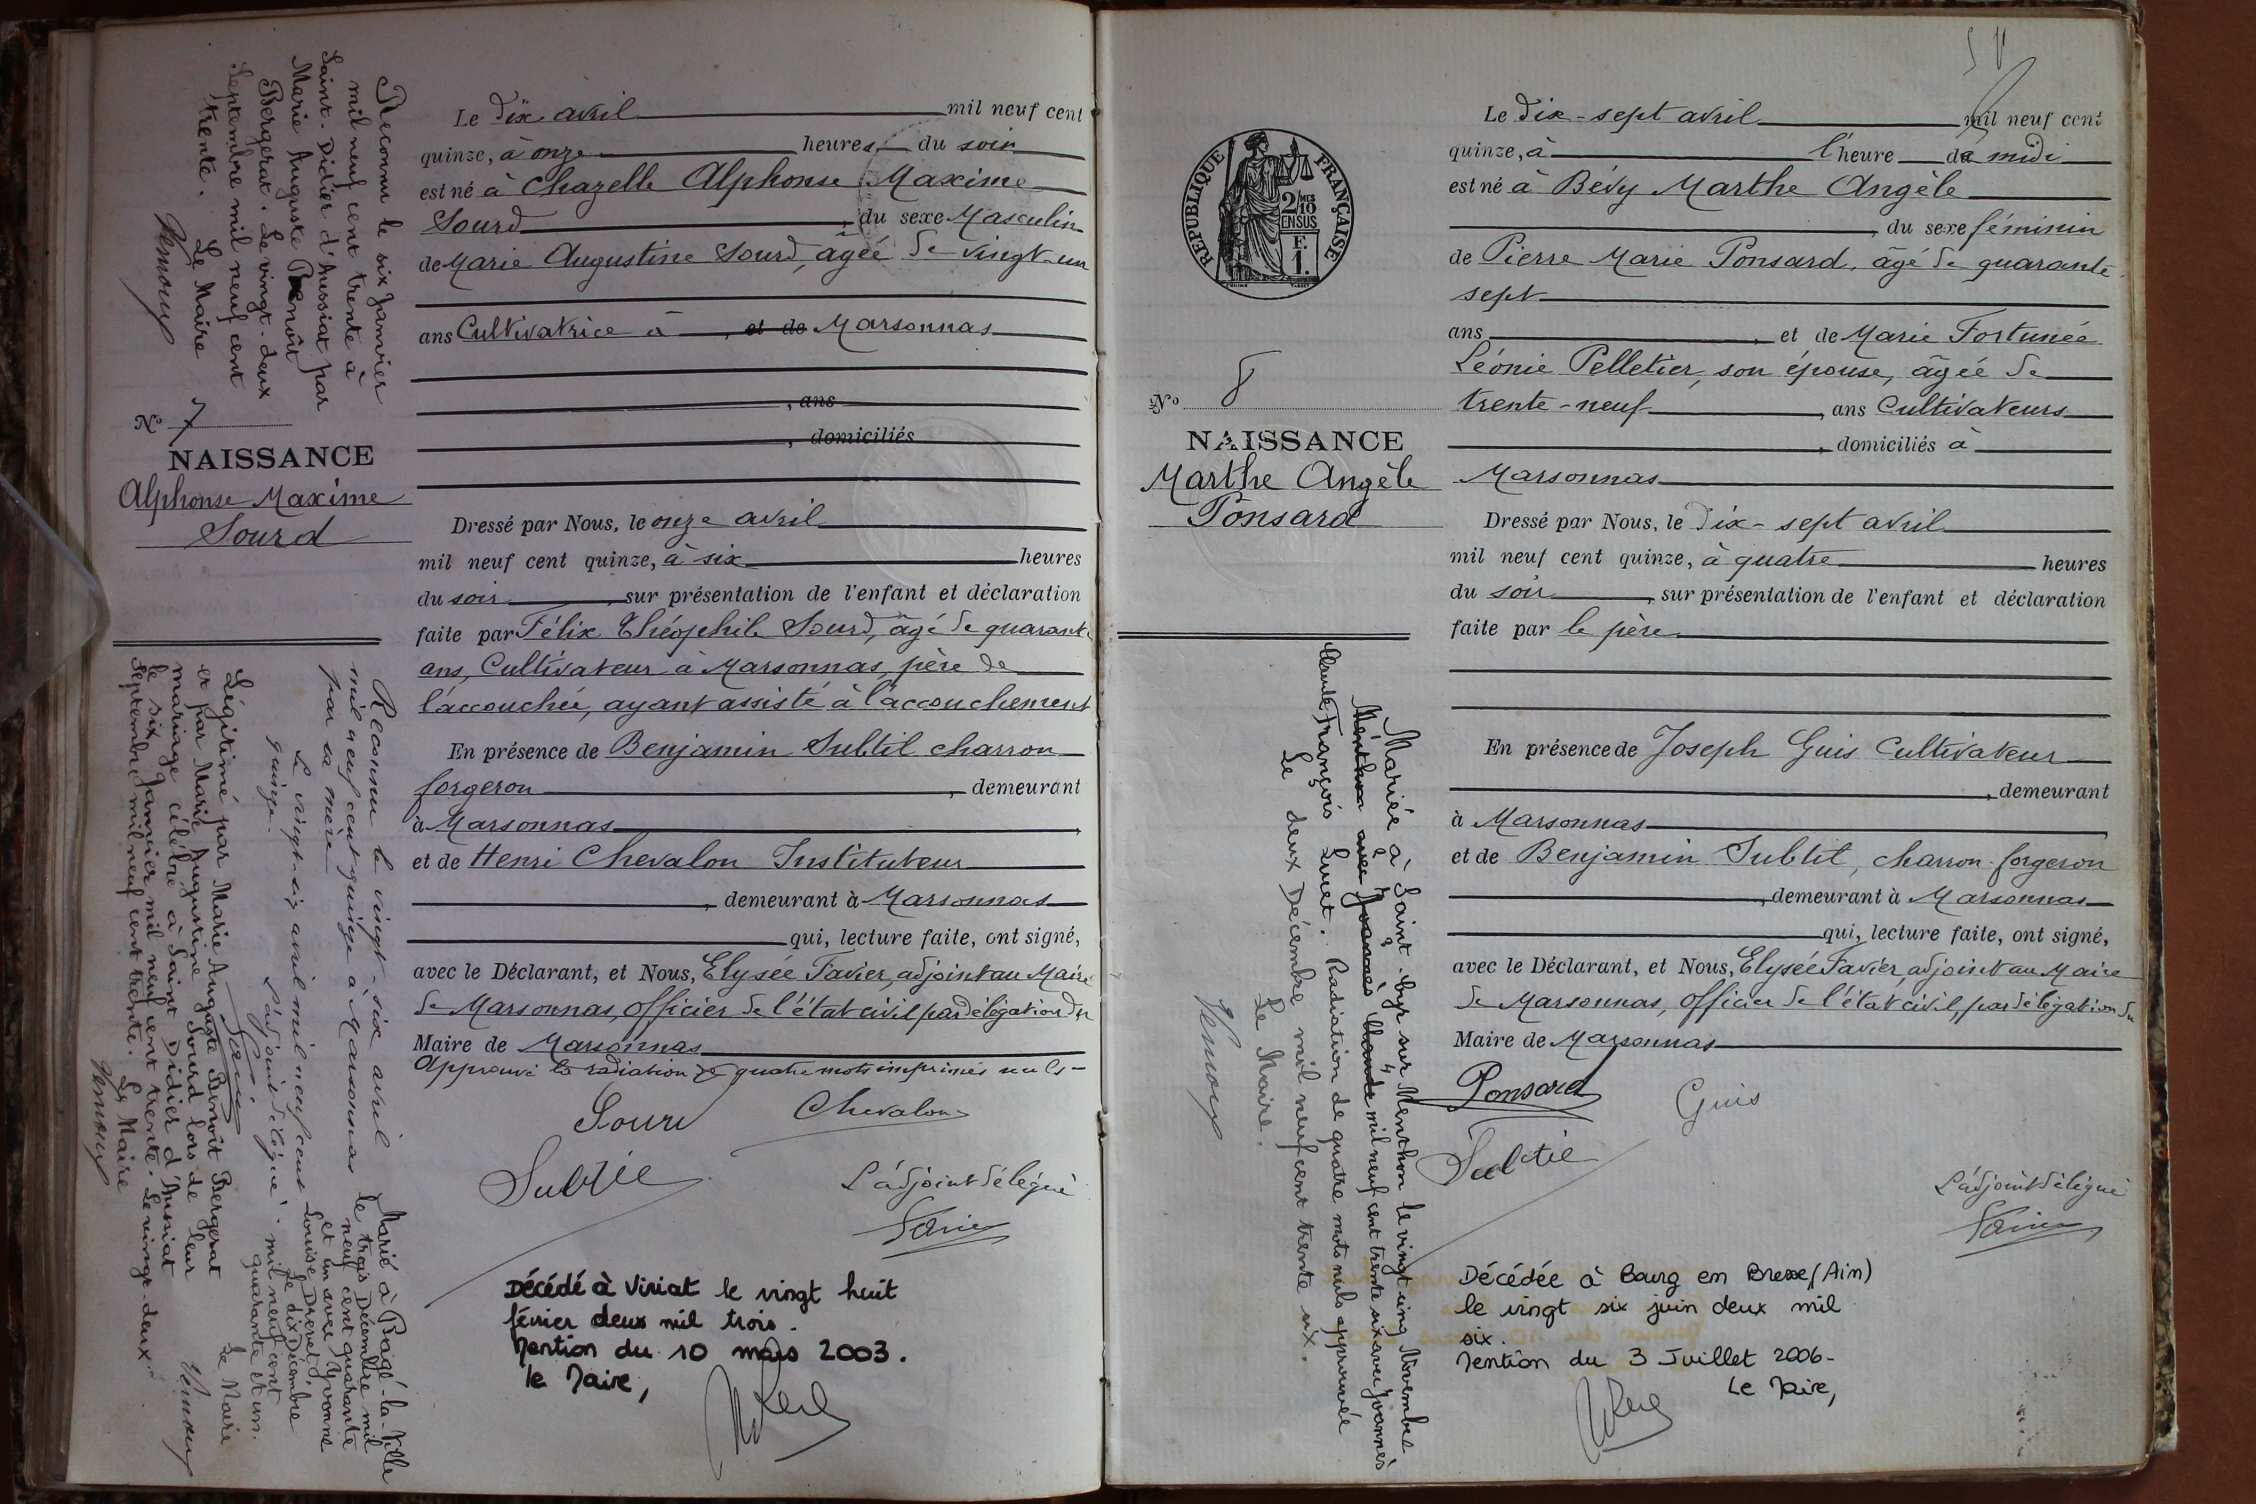 Reconnu le six Janvier
mil neuf cent trente à
Saint-Didier d'Aussiat par
Marie Auguste Benoît
Bergerat. Le vingt-deux
Septembre mil neuf cent
trente. Le Maire
N° 7
NAISSANCE
Alphonse Maxime
Sourd
Reconnu le vingt-six avril
mil neuf cent quinze à Marsonnas
par sa mère
Le vingt-six avril mil neuf cent
quinze. L'adjoint délégué.
Légitimé par Marie Auguste Benoît Bergerat
et par Marie Augustine Sourd lors de leur
mariage célébré à Saint Didier d'Aussiat
le six Janvier mil neuf cent trente. Le vingt-deux
Septembre mil neuf cent trente. Le Maire
Marié à Bâgé-la-Ville
le trois Décembre mil
neuf cent quarante
et un avec Yvonne
Louise Drevet,
Le dix Décembre
mil neuf cent
quarante et un.
Le Maire
Le dix avril mil neuf cent
quinze, à onze heures du soir
est né à Chazelle Alphonse Maxime
Sourd, du sexe Masculin
de Marie Augustine Sourd, agée de vingt-un
ans Cultivatrice à , et de Marsonnas
, ans
, domiciliés
Dressé par Nous, le onze avril
mil neuf cent quinze, à six heures
du soir, sur présentation de l'enfant et déclaration
faite par Félix Théophile Sourd, âgé de quarante
ans, Cultivateur à Marsonnas, père de
l'accouchée, ayant assisté à l'accouchement
En présence de Benjamin Subtil charron
forgeron, demeurant
à Marsonnas,
et de Henri Chevalon Instituteur
, demeurant à Marsonnas
qui, lecture faite, ont signé,
avec le Déclarant, et Nous, Elysée Favier, adjoint au Maire
de Marsonnas, officier de l'état civil par délégation du
Maire de Marsonnas
Approuvé la radiation de quatre mots imprimés nuls-
Sourd Chevalon
Subtil L'adjoint délégué
Favier
Décédé à Viriat le vingt huit
février deux mil trois.
Mention du 10 mars 2003.
le Maire,
REPUBLIQUE FRANÇAISE
2/10 MES
EN SUS
F.
1.
N° 8
NAISSANCE
Marthe Angèle
Ponsard
Mariée à Saint-Cyr sur Menthon le vingt cinq Novembre
Menthon avec Joannès Claude mil neuf cent trente six avec Joannès
Claude François Luret. Radiation de quatre mots nuls approuvée
Le deux Décembre mil neuf cent trente six.
Le Maire.
Le Dix-sept avril mil neuf cent
quinze, à l'heure de midi
est né à Bévy Marthe Angèle
, du sexe féminin
de Pierre Marie Ponsard, âgé de quarante-
sept
ans, et de Marie Fortunée
Léonie Pelletier, son épouse, âgée de
trente-neuf, ans Cultivateurs
, domiciliés à
Marsonnas
Dressé par Nous, le Dix-sept avril
mil neuf cent quinze, à quatre heures
du soir, sur présentation de l'enfant et déclaration
faite par le père.
En présence de Joseph Guis Cultivateur
, demeurant
à Marsonnas,
et de Benjamin Subtil, charron-forgeron
, demeurant à Marsonnas
qui, lecture faite, ont signé,
avec le Déclarant, et Nous, Elysée Favier, adjoint au Maire
de Marsonnas, officier de l'état civil, par délégation du
Maire de Marsonnas
Ponsard Guis
Subtil
L'adjoint délégué
Favier
Décédée à Bourg en Bresse (Ain)
le vingt six juin deux mil
six.
Mention du 3 Juillet 2006-
Le Maire,